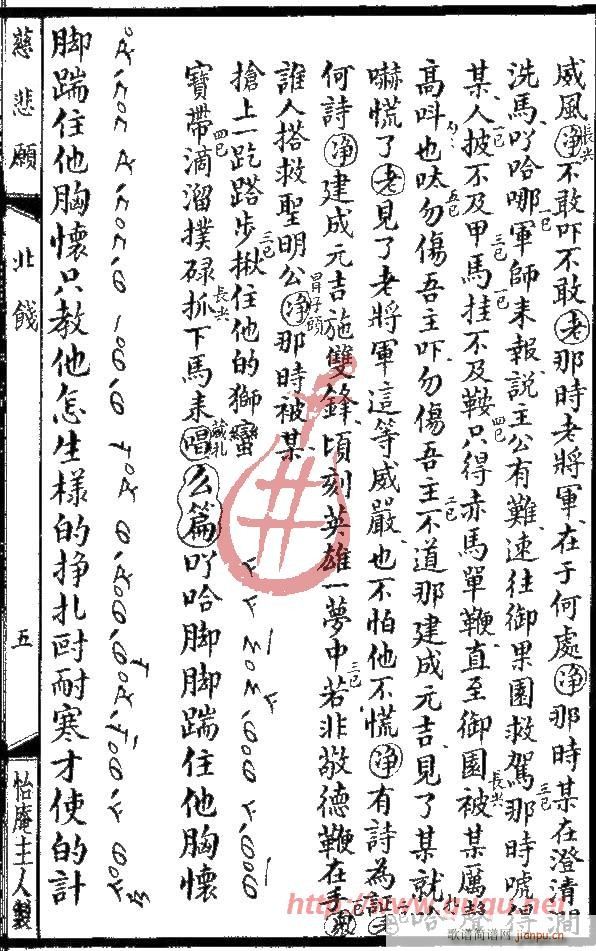 威風(净)不敢吓不敢(老)那時老將軍在于何處(净)那時某在澄清
洗馬吖哈哪軍師来報說主公有難速往御果園救駕那時唬得
某人披不及甲馬挂不及鞍只得赤馬單鞭直至御園被某厲聲
高呌也呔勿傷吾主吓勿傷吾主不道那建成元吉見了某就
嚇慌了(老)見了老將軍這等威嚴也不怕他不慌(净)有詩為証
何詩(净)建成元吉施雙鋒頃刻英雄一夢中若非敬德鞭在手
誰人搭救聖明公(净)那時被某
搶上一趷踏步揪住他的獅蠻
寶帶滴溜撲碌抓下馬来(唱)(么篇)吖哈脚脚踹住他胸懷
脚踹住他胸懷只教他怎生樣的掙扎囬耐寒才使的計
慈悲願
北餞
五
怡庵主人製
www.ququ.net
歌谱简谱网
jianpu.cn